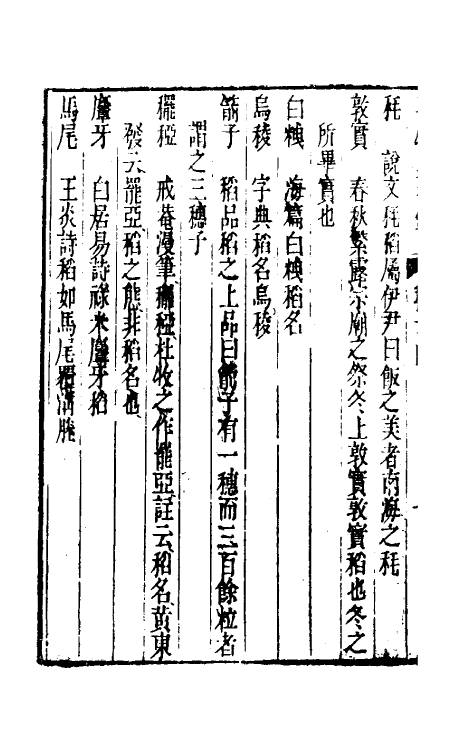 秏　說文秏稻屬伊尹曰飯之美者南海之秏
敦實　春秋繁露宗廟之祭冬上敦實敦實稻也冬之
所畢實也
白𥟖　海篇白𥟖稻名
烏稜　字典稻名烏稜
箭子　稻品稻之上品曰箭子有一穗而三百餘粒者
謂之三穗子
䆉稏　戒菴漫筆䆉稏杜牧之作罷亞註云稻名黃東
發云罷亞稻之態非稻名也
麞牙　白居易詩祿米麞牙稻
馬尾　王炎詩稻如馬尾覆溝塍